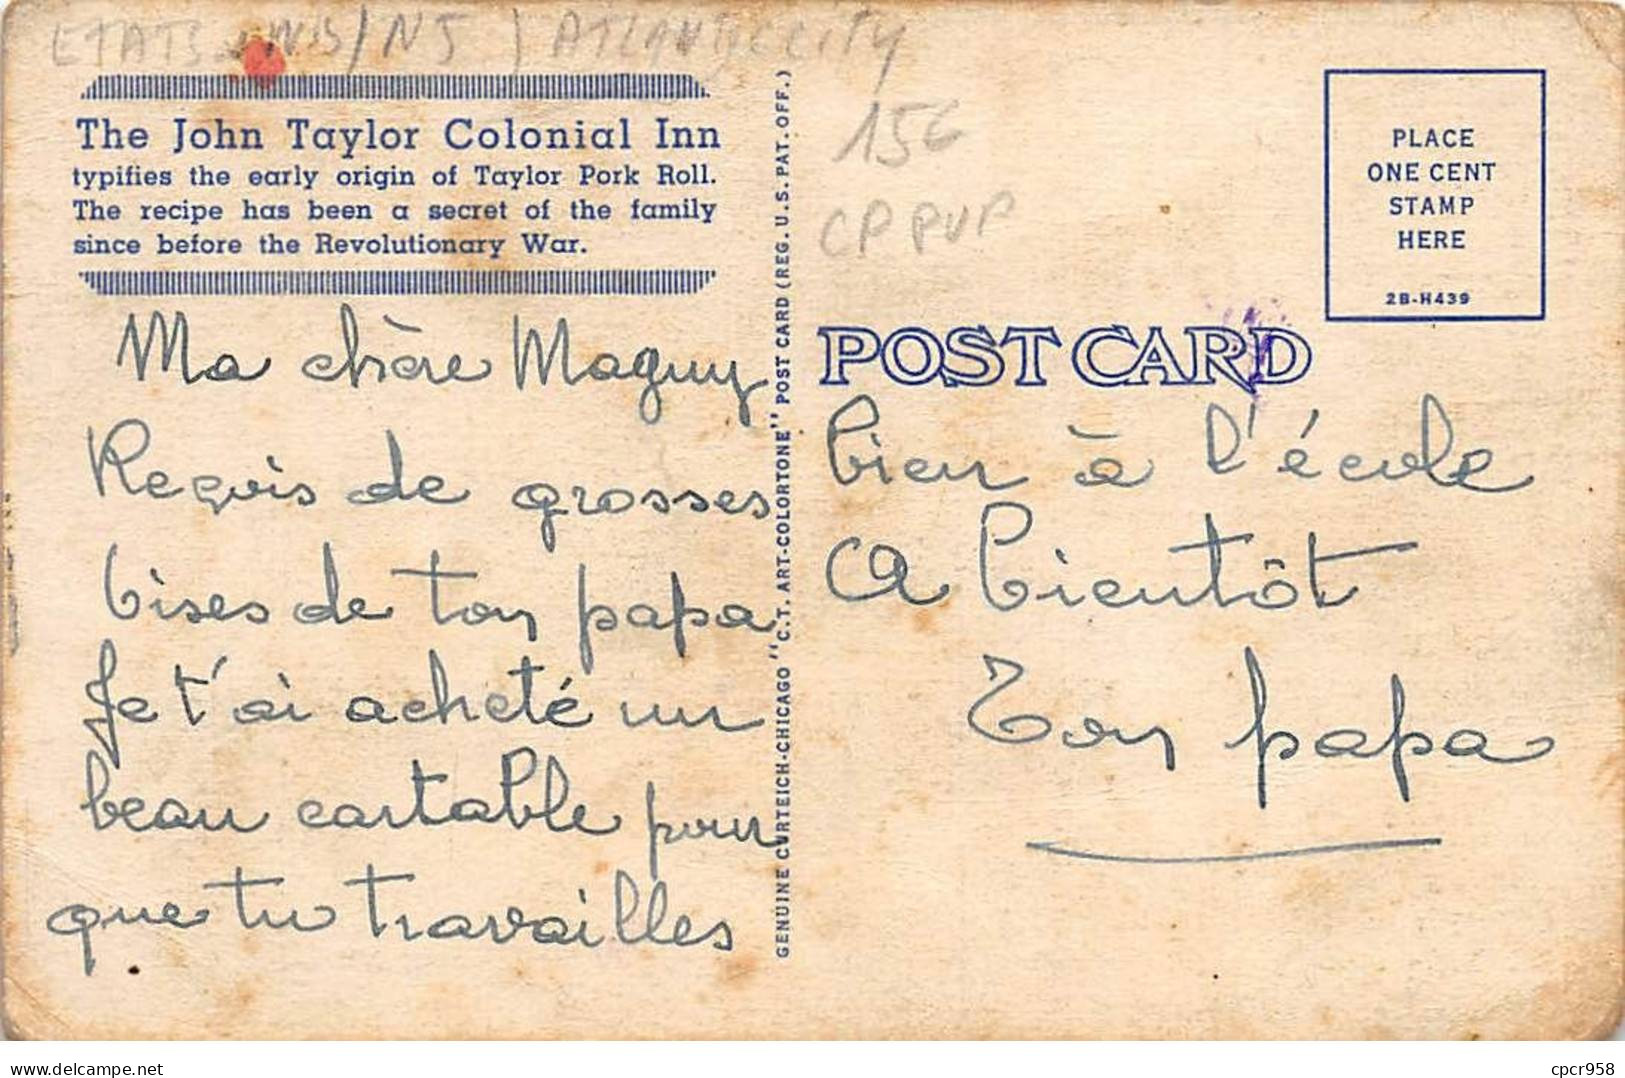 ETATS UNIS/NJ / ATLANTIC CITY
The John Taylor Colonial Inn
typifies the early origin of Taylor Pork Roll.
The recipe has been a secret of the family
since before the Revolutionary War.
Ma chère Maguy
Reçois de grosses
bises de ton papa
Je t'ai acheté un
beau cartable pour
que tu travailles
GENUINE CURTEICH-CHICAGO "C.T. ART-COLORTONE" POST CARD (REG. U.S. PAT. OFF.)
15€
CP PVP
PLACE
ONE CENT
STAMP
HERE
2B-H439
POST CARD
bien à l'école
A bientôt
Ton papa
www.delcampe.net
cpcr958